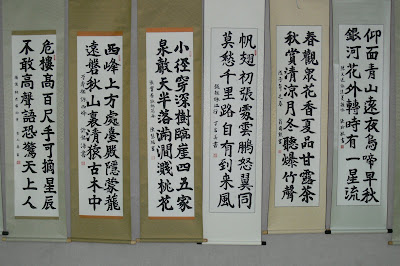 仰面青山遠夜烏啼早秋
銀河花外轉時有一星流
春觀眾花香夏品甘露茶
秋賞清涼月冬聽爆竹聲
帆翅初張處雲鵬怒翼同
莫愁千里路自有到來風
小徑穿深樹臨崖四五家
泉聲天半落滿澗濺桃花
西峰上方處臺殿隱蒙蘢
遠磬秋山裏清猿古木中
危樓高百尺手可摘星辰
不敢高聲語恐驚天上人